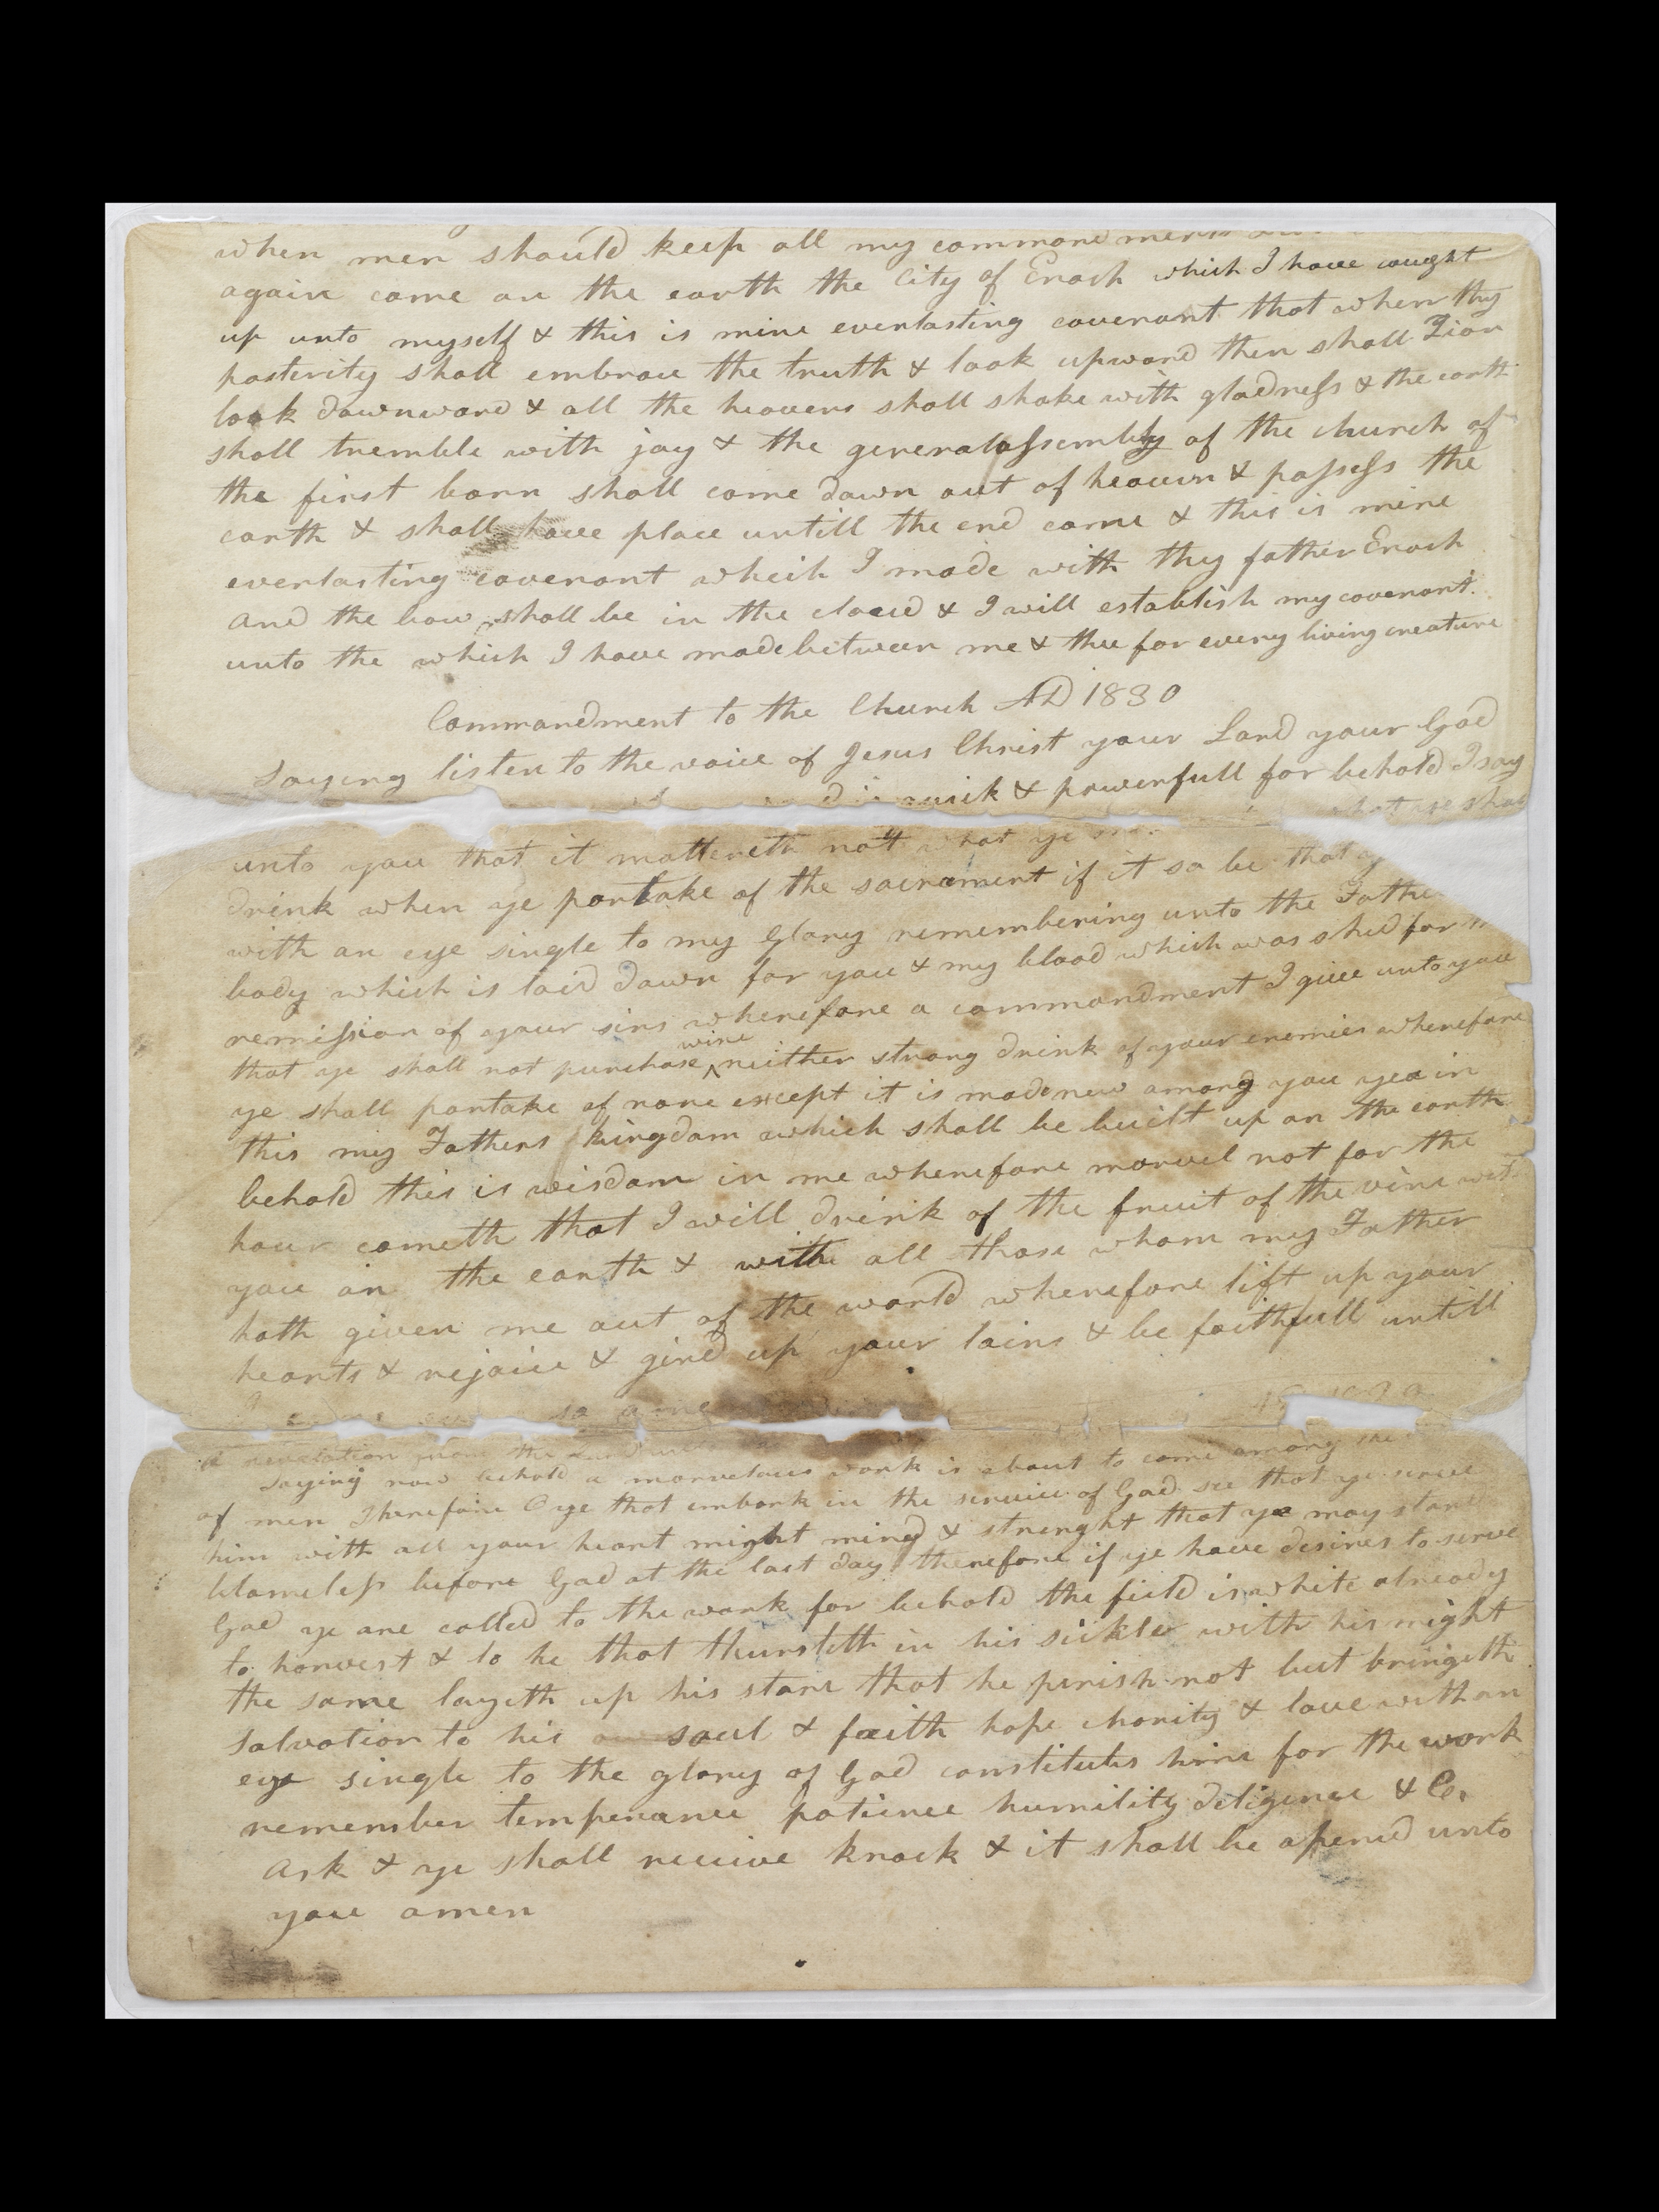 when men should keep all my commandments
again come on the earth the City of Enoch which I have caught
up unto myself & this is mine everlasting covenant that when thy
posterity shall embrace the truth & look upward then shall Zion
look downward & all the heavens shall shake with gladness & the earth
shall tremble with joy & the general assembly of the church of
the first born shall come down out of heaven & possess the
earth & shall have place untill the end come & this is mine
everlasting covenant wheich I made with thy father Enoch
and the bow shall be in the cloud & I will establish my covenant
unto the which I have made between me & thee for every living creature
Commandment to the Church AD 1830
Saying listen to the voice of Jesus Christ your Lord your God
quick & powerfull for behold I say
unto you that it mattereth not what ye what ye shall
drink when ye partake of the sacrament if it so be that
with an eye single to my glory remembering unto the Father
body which is laid down for you & my blood which was shed for
remission of your sins wherefore a commandment I give unto you
that ye shall not purchase wine neither strong drink of your enemies wherefore
ye shall partake of none except it is made new among you yea in
this my Fathers kingdom which shall be built up on the earth
behold this is wisdom in me wherefore marvel not for the
hour cometh that I will drink of the fruit of the vine with
you on the earth & with all those whom my Father
hath given me out of the world wherefore lift up your
hearts & rejoice & gird up your loins & be faithfull untill
I so
a revelation from the Lord
saying now behold a marvelous work is about to come among the
of men Therefore O ye that embark in the service of God see that ye serve
him with all your heart might mind & strenght that ye may stand
blameless before God at the last day therefore if ye have desires to serve
God ye are called to the work for behold the field is white already
to harvest & lo he that thursteth in his sickle with his might
the same layeth up his store that he perish not but bringeth
salvation to his soul & faith hope charity & love with an
eye single to the glory of God constitutes him for the work
remember temperance patience humility diligence & C.
Ask & ye shall receive knock & it shall be opened unto
you amen